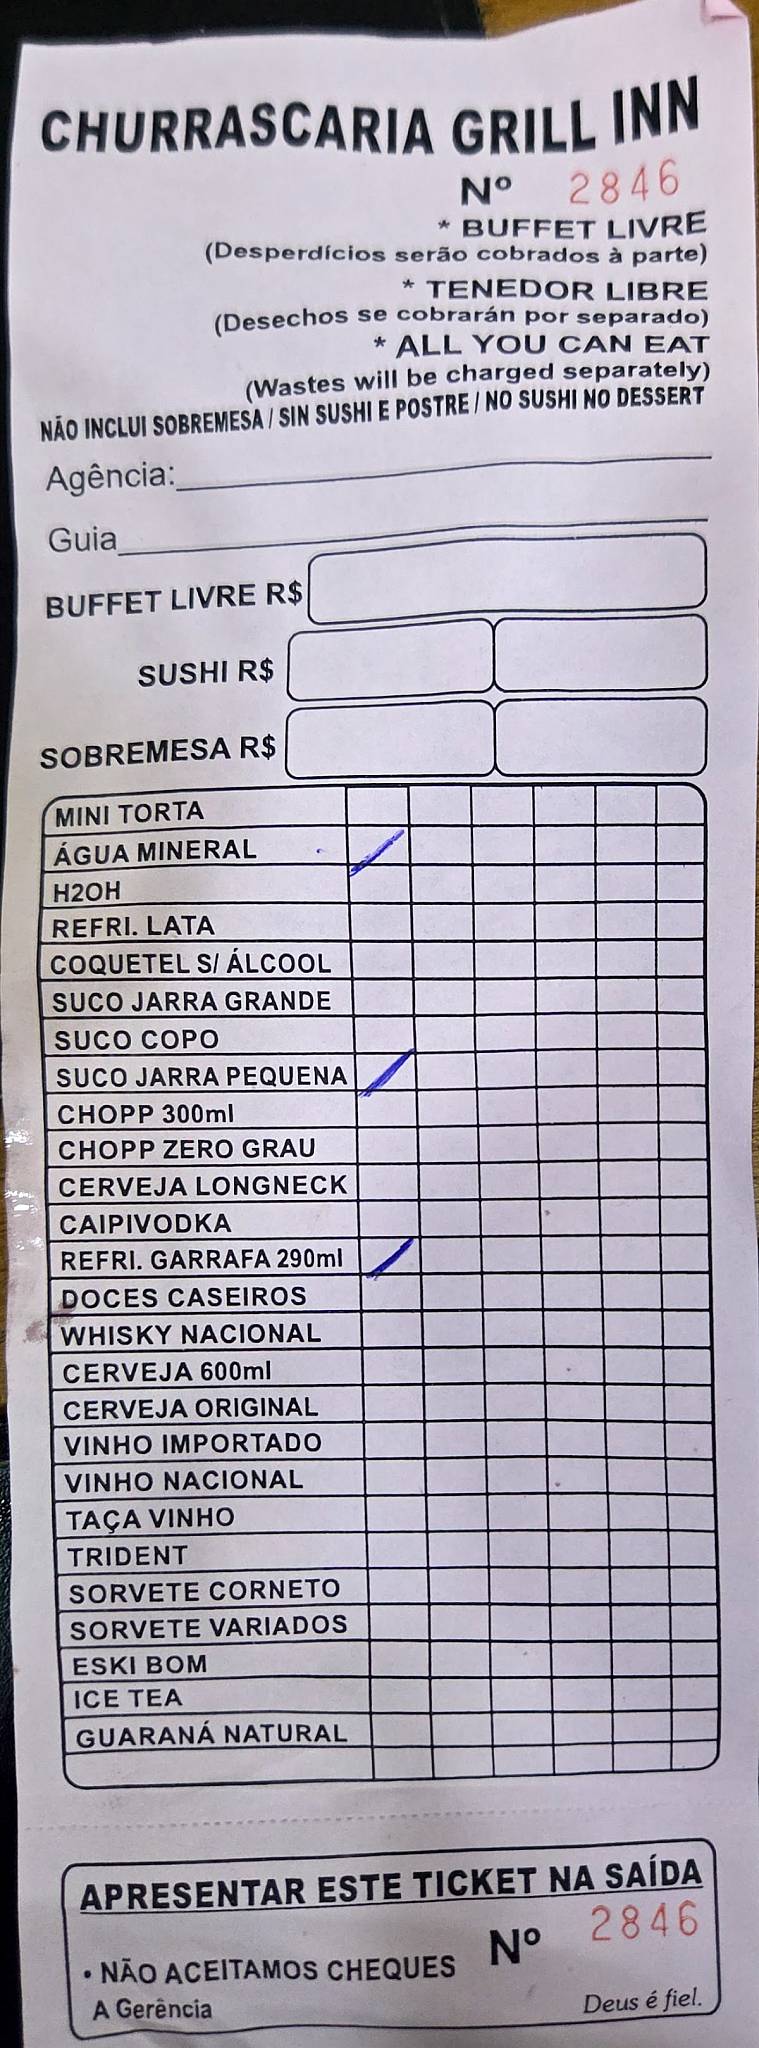 CHURRASCARIA GRILL INN
Nº 2846
* BUFFET LIVRE
(Desperdícios serão cobrados à parte)
* TENEDOR LIBRE
(Desechos se cobrarán por separado)
* ALL YOU CAN EAT
(Wastes will be charged separately)
NÃO INCLUI SOBREMESA / SIN SUSHI E POSTRE / NO SUSHI NO DESSERT
Agência:
Guia
BUFFET LIVRE R$
SUSHI R$
SOBREMESA R$
MINI TORTA
ÁGUA MINERAL
H2OH
REFRI. LATA
COQUETEL S/ ÁLCOOL
SUCO JARRA GRANDE
SUCO COPO
SUCO JARRA PEQUENA
CHOPP 300ml
CHOPP ZERO GRAU
CERVEJA LONGNECK
CAIPIVODKA
REFRI. GARRAFA 290ml
DOCES CASEIROS
WHISKY NACIONAL
CERVEJA 600ml
CERVEJA ORIGINAL
VINHO IMPORTADO
VINHO NACIONAL
TAÇA VINHO
TRIDENT
SORVETE CORNETO
SORVETE VARIADOS
ESKI BOM
ICE TEA
GUARANÁ NATURAL
APRESENTAR ESTE TICKET NA SAÍDA
Nº 2846
• NÃO ACEITAMOS CHEQUES
A Gerência Deus é fiel.